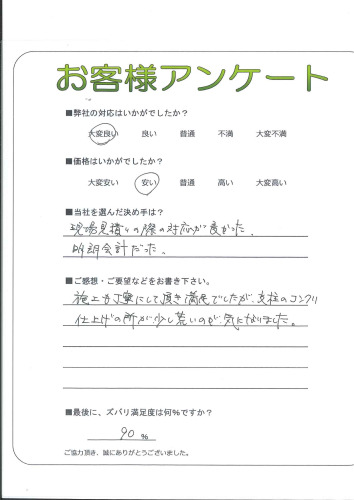 お客様アンケート
■弊社の対応はいかがでしたか？
大変良い 良い 普通 不満 大変不満
■価格はいかがでしたか？
大変安い 安い 普通 高い 大変高い
■当社を選んだ決め手は？
現場見積りの際の対応が良かった。
明朗会計だった。
■ご感想・ご要望などをお書き下さい。
施工も丁寧にして頂き満足でしたが、支柱のコンクリ
仕上げの所が少し荒いのが気になりました。
■最後に、ズバリ満足度は何％ですか？
90 ％
ご協力頂き、誠にありがとうございました。